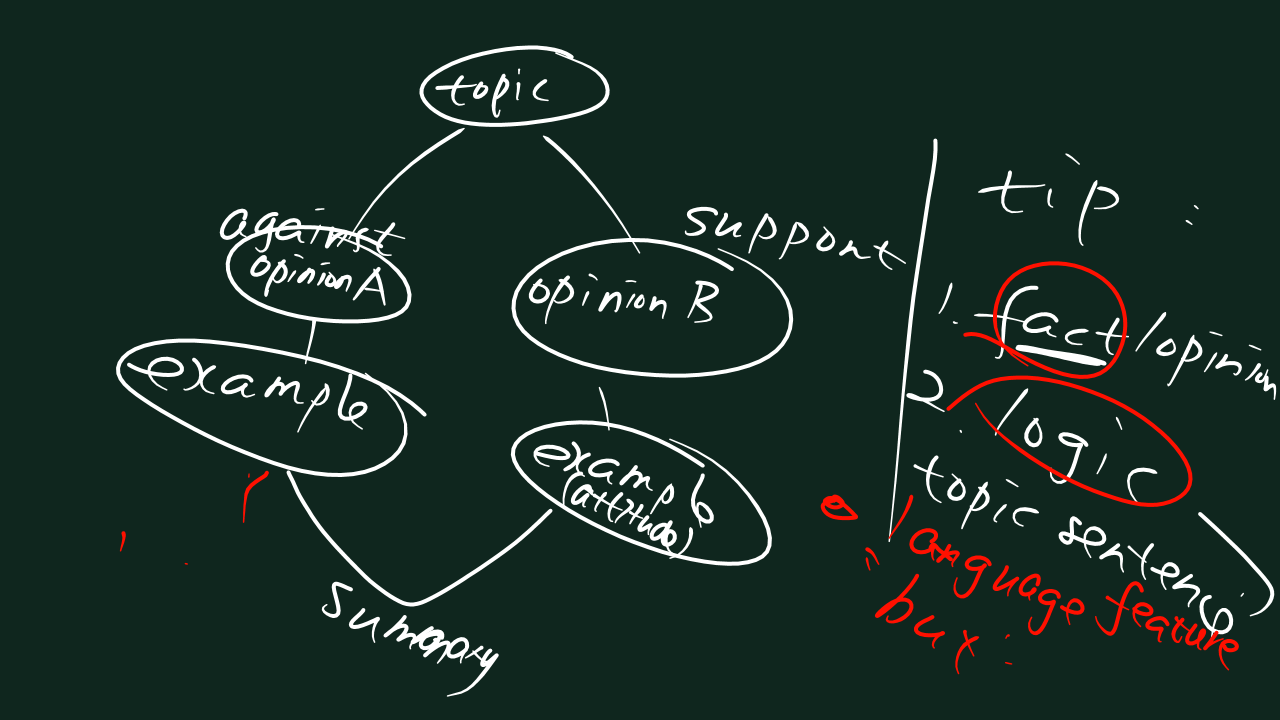 topic
against
opinion A
support
opinion B
example
example
(attitude)
summary
tip :
1. fact / opinion
2. logic
topic sentence
language feature
bux :